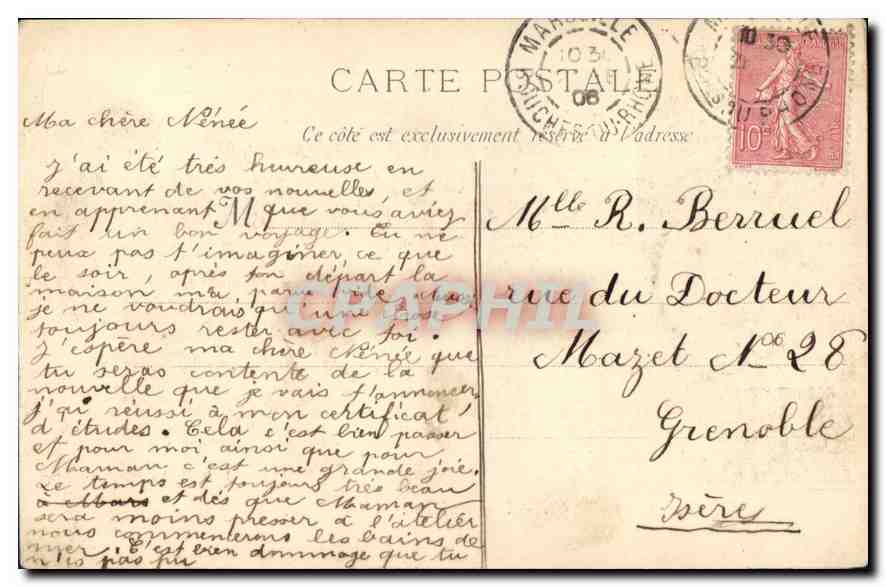 CARTE POSTALE
Ce côté est exclusivement réservé à l'adresse
MARSEILLE
BOUCHES-DU-RHONE
10 30
06
10 30
10c
CPAPHIL
Ma chère Nénée
J'ai été très hureuse en
recevant de vos nouvelles, et
en apprenant que vous aviez
fait un bon voyage. Tu ne
peux pas t'imaginer, ce que
le soir, après ton départ la
maison m'a paru vide, aussi
je ne voudrais qu'une chose
toujours rester avec toi.
J'espère ma chère Nénée que
tu seras contente de la
nouvelle que je vais t'annoncer
j'ai réussi à mon certificat
d'études. Cela c'est bien passer
et pour moi ainsi que pour
Maman c'est une grande joie.
Le temps est toujours très beau
et dès que Maman
sera moins presser à l'atelièr
nous commencerons les bains de
mer. C'est bien dommage que tu
n'ais pas pu
M
Mlle R. Berruel
rue du Docteur
Mazet No 28
Grenoble
Isère